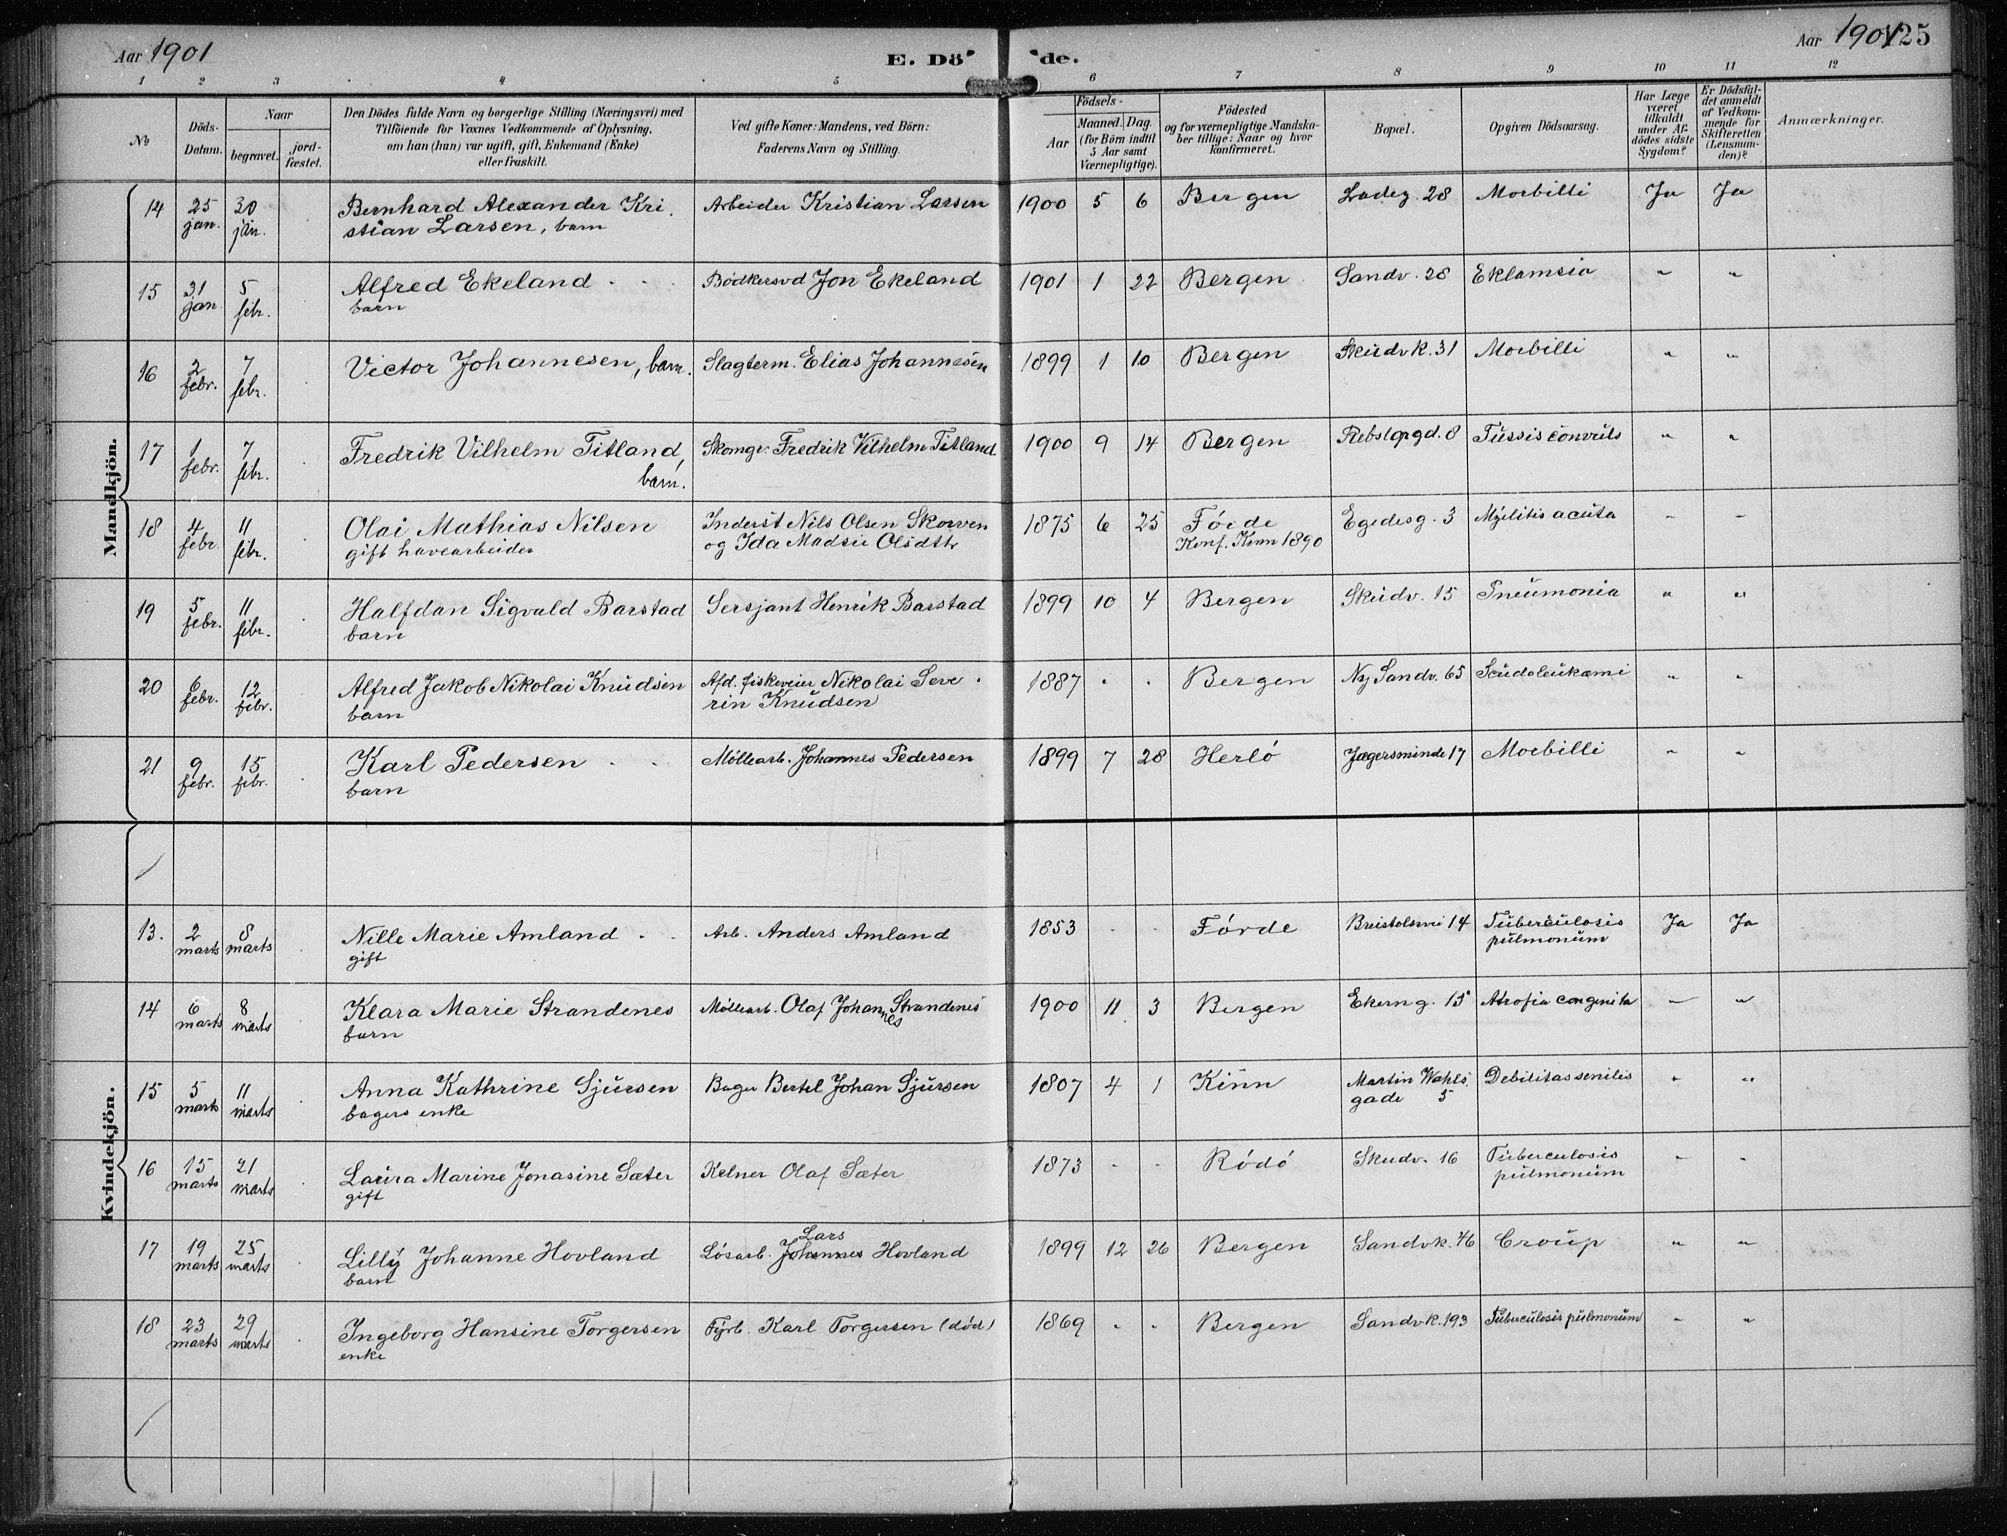 Aar 1901
E. Döde.
Aar 1901
125
1 2 3 4 5 6 7 8 9 10 11 12
No
Döds-Datum.
Naar
begravet.
jord-fæstet.
Den Dödes fulde Navn og borgerlige Stilling (Næringsvei) med
Tilföiende for Voxnes Vedkommende af Oplysning,
om han (hun) var ugift, gift, Enkemand (Enke)
eller fraskilt.
Ved gifte Koner: Mandens, ved Börn:
Faderens Navn og Stilling.
Födsels-
Aar
Maaned. Dag.
(for Börn indtil
5 Aar samt
Værnepligtige).
Födested
og for værnepligtige Mandska-
ber tillige: Naar og hvor
konfirmeret.
Bopæl.
Opgiven Dödsaarsag.
Har Læge
været
tilkaldt
under Af-
dödes sidste
Sygdom?
Er Dödsfal-
det anmeldt
af Vedkom-
mende for
Skifteretten
(Lensman-
den)?
Anmærkninger.
Mandkjön.
14 25 jan. 30 jan. Bernhard Alexander Kri- Arbeider Kristian Larsen 1900 5 6 Bergen Ladeg. 28 Morbilli Ja Ja
stian Larsen, barn
15 31 jan. 5 febr. Alfred Ekeland Bødkersvd Jon Ekeland 1901 1 22 Bergen Sandv. 28 Eklamsia " "
barn
16 2 febr. 7 febr. Victor Johannesen, barn. Slagterm. Elias Johannesen 1899 1 10 Bergen Skudvk. 31 Morbilli " "
17 1 febr. 7 febr. Fredrik Vilhelm Titland, Skomgr. Fredrik Vilhelm Titland 1900 9 14 Bergen Rebslgrgd. 8 Tussis convuls " "
barn.
18 4 febr. 11 febr. Olai Mathias Nilsen Inderst Nils Olsen Skorven 1875 6 25 Förde Egedesg. 3 Myelitis acuta " "
gift havearbeider og Ida Madsie Olsdttr Konf. Kinn 1890
19 5 febr. 11 febr. Halfdan Sigvald Barstad Sersjant Henrik Barstad 1899 10 4 Bergen Skudv. 15 Pneumonia " "
barn
20 6 febr. 12 febr. Alfred Jakob Nikolai Knudsen Afd. fiskeveier Nikolai Seve- 1887 Bergen Ny Sandv. 65 Seudoleukæmi " "
barn rin Knudsen
21 9 febr. 15 febr. Karl Pedersen Møllearb. Johannes Pedersen 1899 7 28 Herlö Jægersminde 17 Morbilli " "
barn
Kvindekjön.
13. 2 marts 8 marts Nille Marie Amland Arb. Anders Amland 1853 Förde Breistolsvei 14 Tuberculosis Ja Ja
gift pulmonum
14 6 marts 8 marts Klara Marie Strandenes Møllearb. Olaf Johannes Strandenes 1900 11 3 Bergen Ekerng. 15 Atrofia congenita " "
barn
15 5 marts 11 marts Anna Kathrine Sjursen Bager Bertel Johan Sjursen 1807 4 1 Kinn Martin Wahls Debilitas senilis " "
bagers enke gade 5
16 15 marts 21 marts Laura Marine Jonasine Sæter Kelner Olaf Sæter 1873 Rödö Skudv. 16 Tuberculosis " "
gift pulmonum
17 19 marts 25 marts Lilly Johanne Hovland Løsarb. Johannes Lars Hovland 1899 12 26 Bergen Sandvk. 46 Croup " "
barn
18 23 marts 29 marts Ingeborg Hansine Torgersen Fyrb. Karl Torgersen (död) 1869 Bergen Sandvk. 193 Tuberculosis pulmonum " "
enke